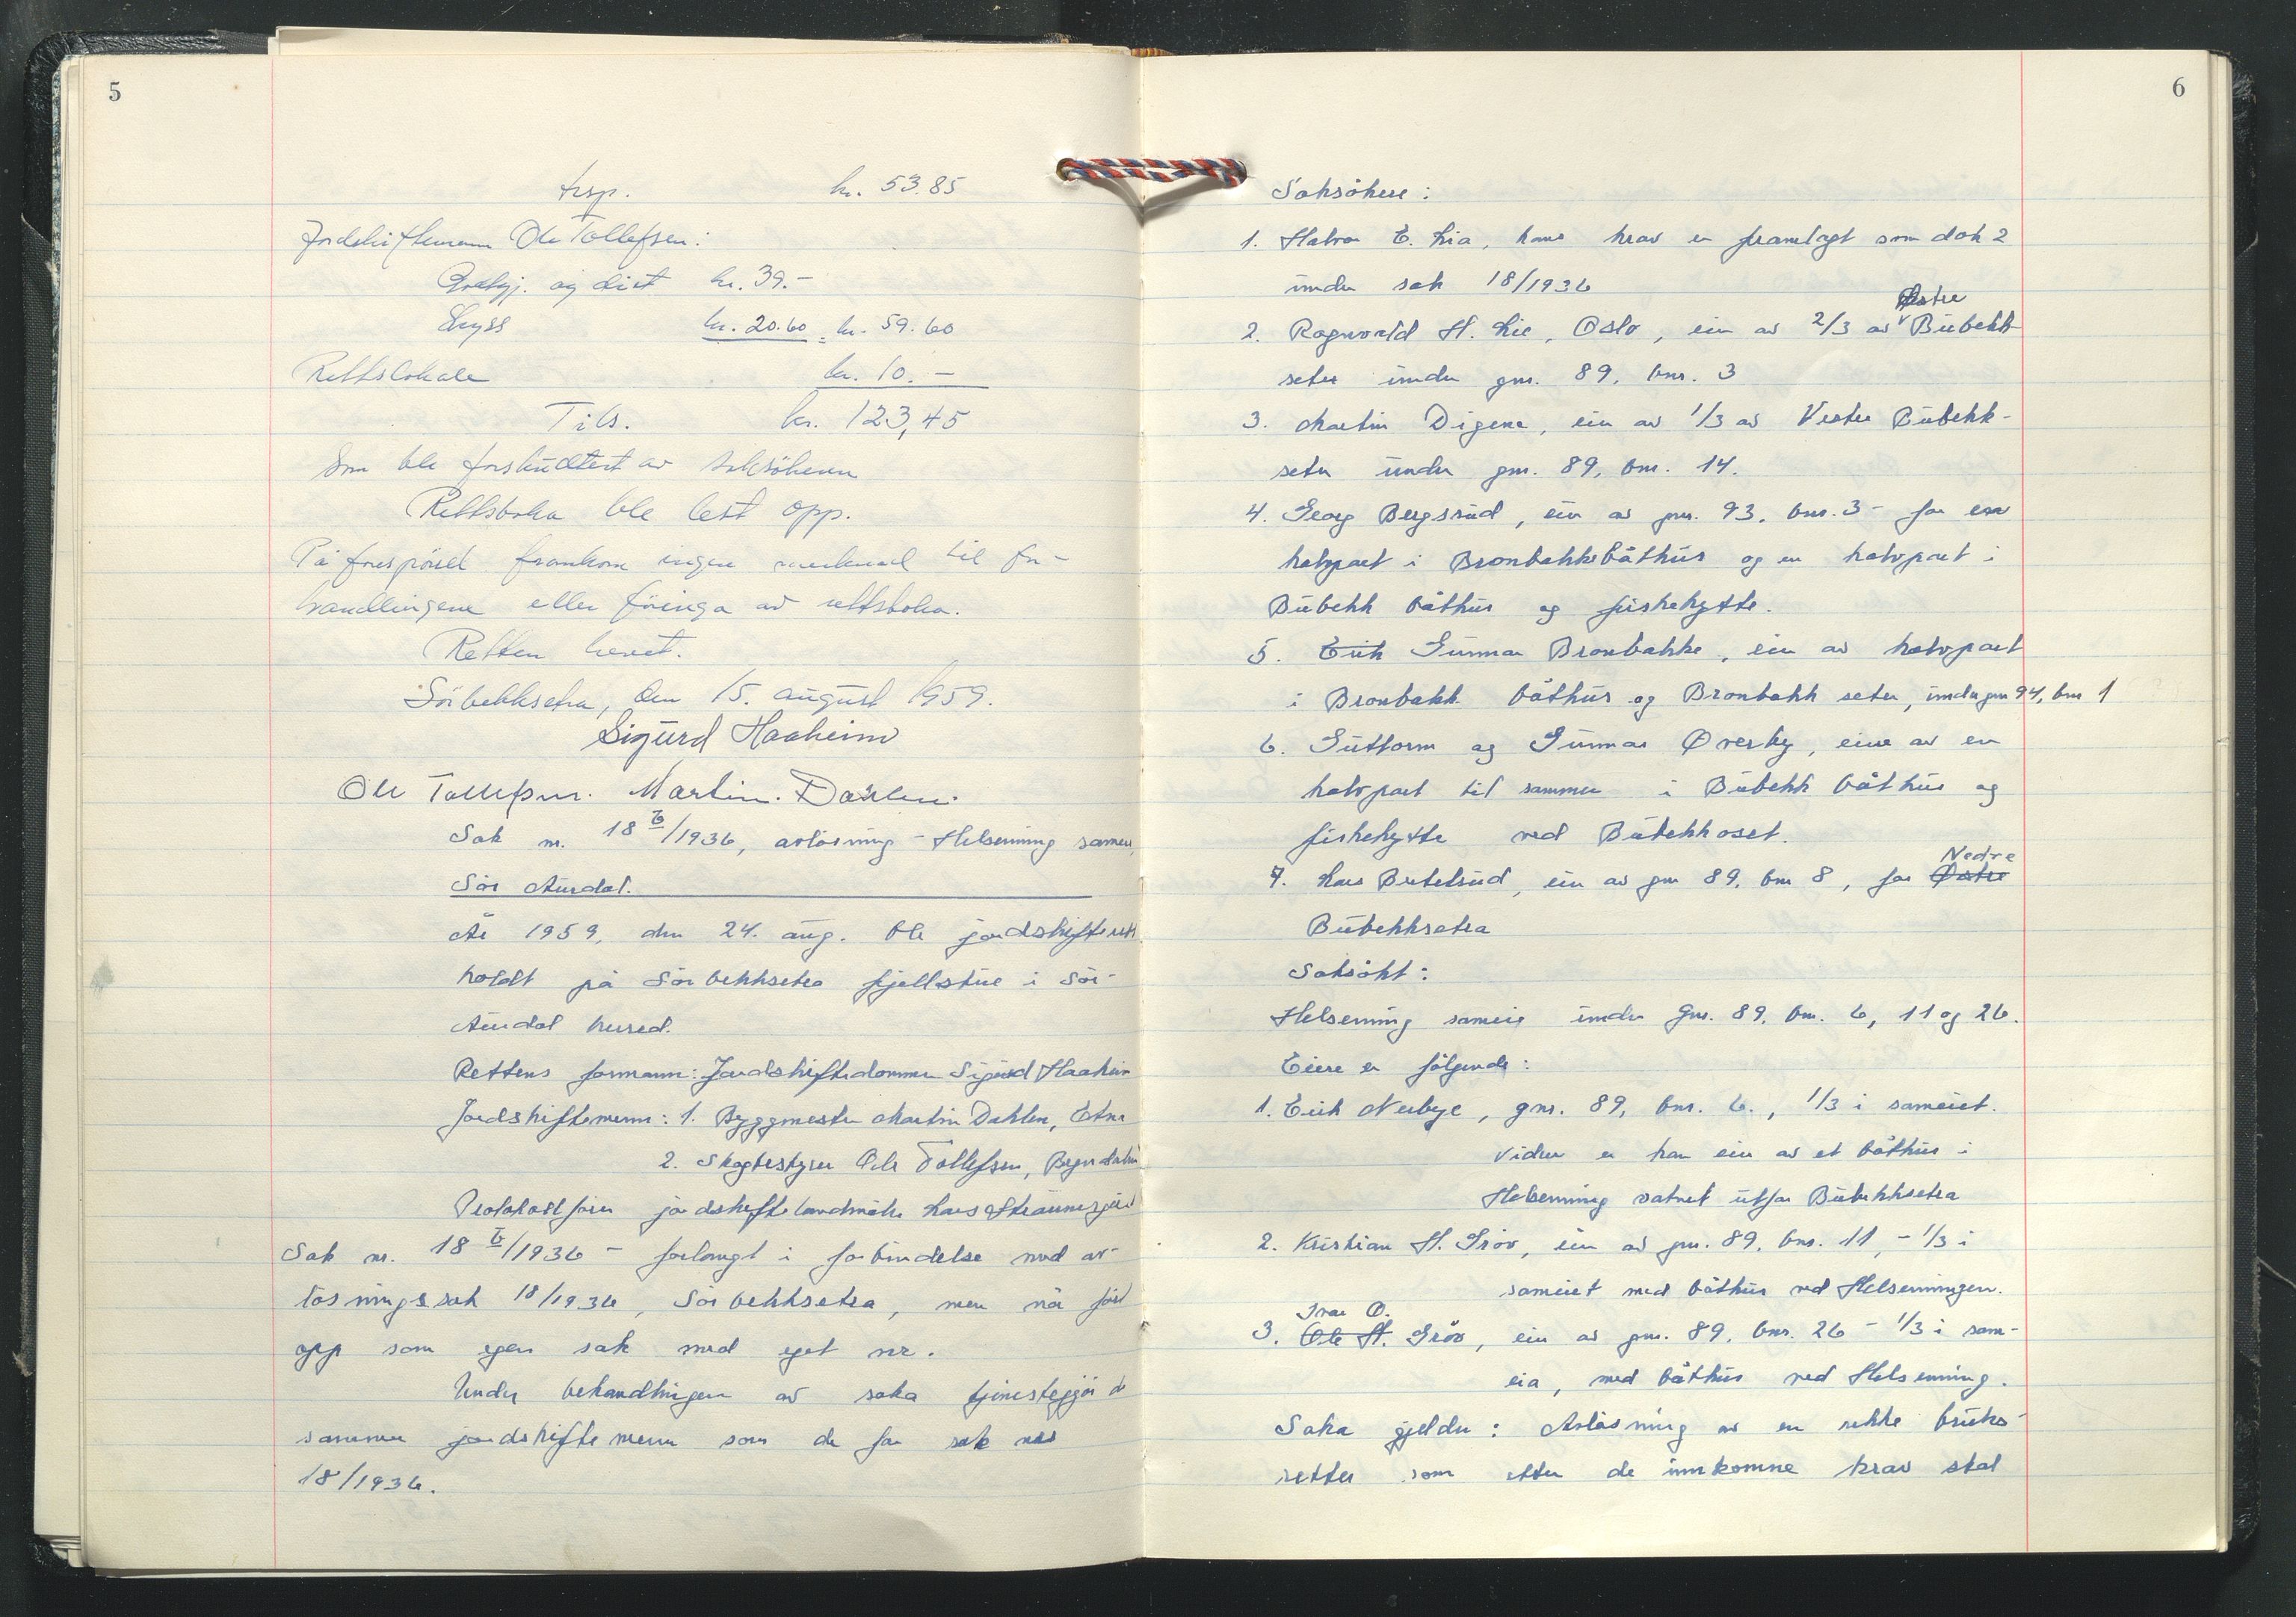 5
trsp. kr. 53.85
Jordskiftemann Ole Tollefsen:
Godtgj. og diet kr. 39.-
Skyss kr. 20.60 = kr. 59.60
Rettslokale kr. 10.-
Tils. kr. 123,45
som ble forskuttert av saksökeren
Rettsboka ble lest opp.
På forespörsel framkom ingen merknad til for-
handlingene eller föringa av rettsboka.
Retten hevet.
Sörbekksetra, den 15. august 1959.
Sigurd Haaheim
Ole Tollefsen. Martin Dahlen.
Sak nr. 18 b/1936, avlösning - Helsenning sameie,
Sör Aurdal.
År 1959, den 24. aug. ble jordskifterett
holdt på Sörbekksetra fjellstue i Sör-
Aurdal herred.
Rettens formann: Jordskiftedommer Sigurd Haaheim
Jordskiftemenn: 1. Byggmester Martin Dahlen, Etna
2. Skogbestyrer Ole Tollefsen, Begndalen
Protokollförer jordskiftelandmåler Lars
Sak nr. 18 b/1936 - forlangt i forbindelse med av-
lösningssak 18/1936, Sörbekksetra, men nå fört
opp som egen sak med eget nr.
Under behandlingen av saka tjenestegjör de
samme jordskiftemenn som de for sak nr
18/1936.
6
Saksökere:
1. Halvor E. Lia, hans krav er framlagt som dok 2
under sak 18/1936
Östre
2. Ragnvald H. Lie, Oslo, eier av 2/3 av Bubekk-
seter under gnr. 89, bnr. 3
3. Martin Digene, eier av 1/3 av Vestre Bubekk-
seter under gnr. 89, bnr. 14.
4. Georg Bergsrud, eier av gnr. 93, bnr. 3 - for en
halvpart i Bronbakkebåthus og en halvpart i
Bubekk båthus og fiskehytte.
5. Erik Gunnar Bronbakke, eier av halvpart
i Bronbakk båthus og Bronbakk seter, under gnr 94, bnr 1
6. Guttorm og Gunnar Øverby, eiere av en
halvpart til sammen i Bubekk båthus og
fiskehytte ved Bubekkoset.
Nedre
7. Lars Bertelsrud, eier av gnr 89, bnr 8, for Østre
Bubekksetra
Saksökt:
Helsenning sameie under Gnr. 89, bnr. 6, 11 og 26.
Eiere er fölgende:
1. Erik Nerbye, gnr. 89, bnr. 6., 1/3 i sameiet.
Videre er han eier av et båthus i
Helsenning vatnet utfor Bubekksetra
2. Kristian H. Gröv, eier av gnr. 89, bnr. 11, - 1/3 i
sameiet med båthus ved Helsenningen.
Ivar O.
3. Ole H. Gröv, eier av gnr. 89, bnr. 26 - 1/3 i sam-
eia, med båthus ved Helsenning.
Saka gjelder: Avlösning av en rekke bruks-
retter som etter de innkomne krav skal